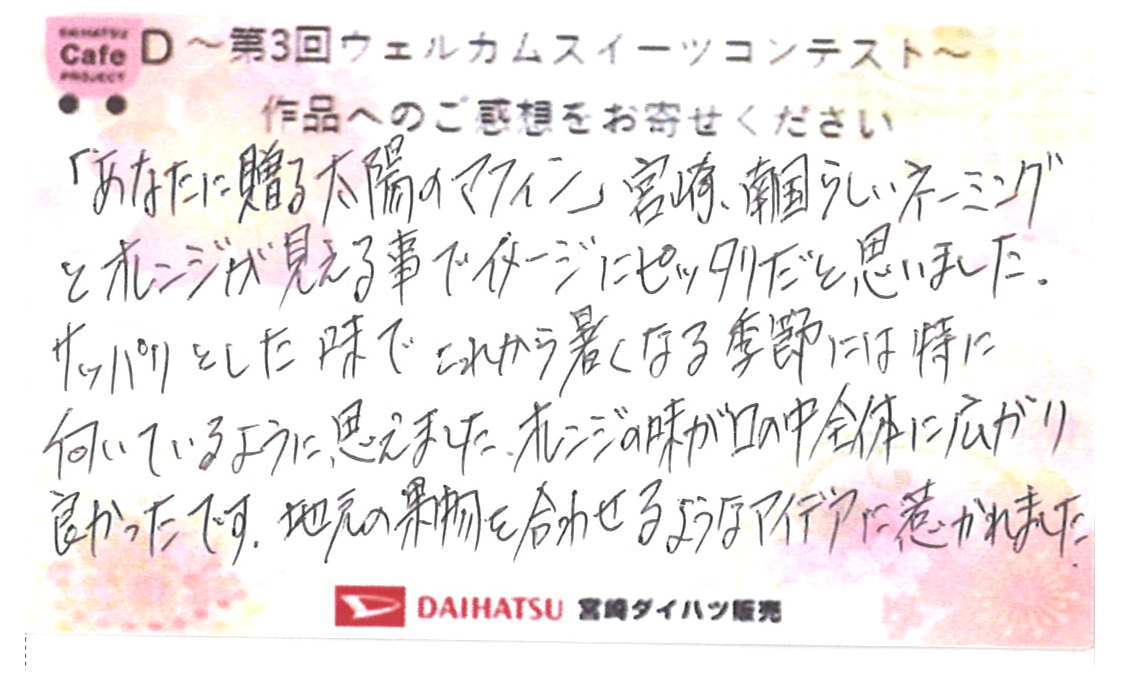 DAIHATSU
Cafe
PROJECT
D ～第3回ウェルカムスイーツコンテスト～
作品へのご感想をお寄せください
「あなたに贈る太陽のマフィン」宮崎、南国らしいネーミング
とオレンジが見える事でイメージにピッタリだと思いました。
サッパリとした味でこれから暑くなる季節には特に
向いているように思えました。オレンジの味が口の中全体に広がり
良かったです。地元の果物を合わせるようなアイデアに惹かれました
DAIHATSU 宮崎ダイハツ販売